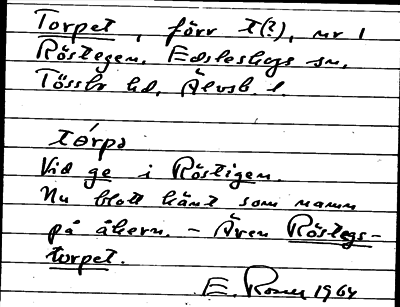 Torpet, förr t(?), nr 1
Röstegen, Edsleskogs sn,
Tössbo hd, Älvsb. l.
tórpə
Vid ge i Röstigen.
Nu blott känt som namn
på åkern. - Även Röstegs-
torpet.
E. 1964